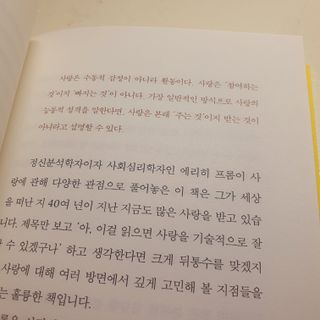 사랑은 수동적 감정이 아니라 활동이다. 사랑은 '참여하는
것'이지 '빠지는 것'이 아니다. 가장 일반적인 방식으로 사랑의
능동적 성격을 말한다면, 사랑은 본래 '주는 것'이지 받는 것이
아니라고 설명할 수 있다.
정신분석학자이자 사회심리학자인 에리히 프롬이 사
랑에 관해 다양한 관점으로 풀어놓은 이 책은 그가 세상
을 떠난 지 40여 년이 지난 지금도 많은 사랑을 받고 있습
니다. 제목만 보고 '아, 이걸 읽으면 사랑을 기술적으로 잘
수 있겠구나' 하고 생각한다면 크게 뒤통수를 맞겠지
사랑에 대해 여러 방면에서 깊게 고민해 볼 지점들을
는 훌륭한 책입니다.